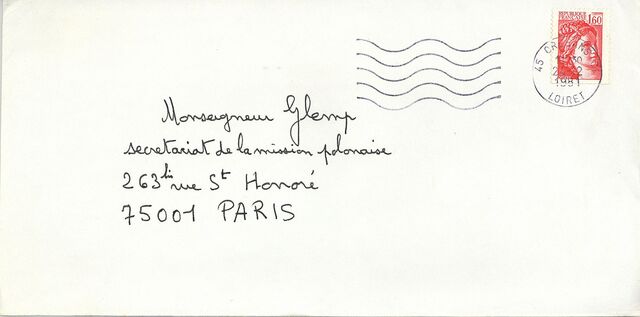 REPUBLIQUE FRANÇAISE
1,60
45
1981
LOIRET
Monseigneur Glemp
secretariat de la mission polonaise
263 bis rue St Honoré
75001 PARIS